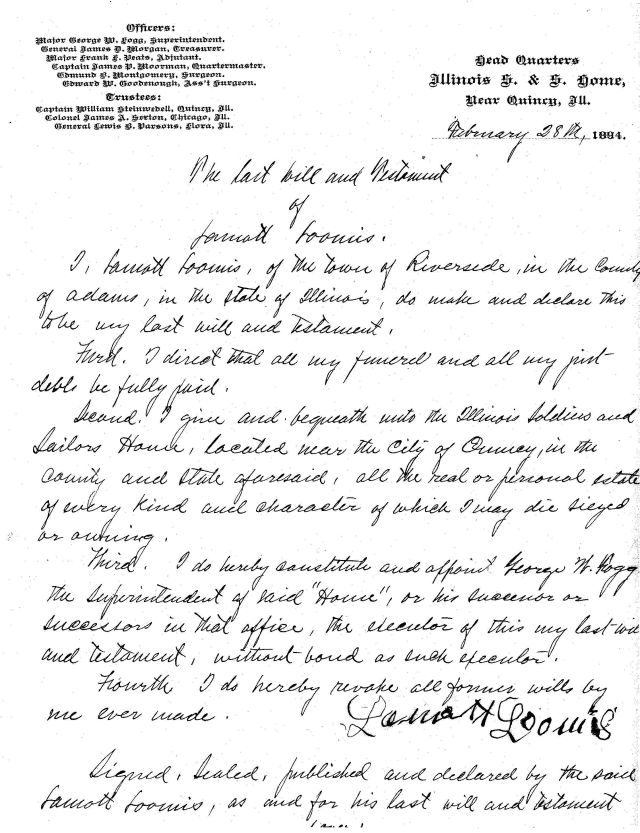 Officers:
Major George W. Fogg, Superintendent.
General James D. Morgan, Treasurer.
Major Frank E. Peats, Adjutant.
Captain James P. Moorman, Quartermaster.
Edmund B. Montgomery, Surgeon.
Edward W. Goodenough, Ass't Surgeon.
Trustees:
Captain William Steinwedell, Quincy, Ill.
Colonel James A. Sexton, Chicago, Ill.
General Lewis B. Parsons, Flora, Ill.
Head Quarters
Illinois S. & S. Home,
Near Quincy, Ill.
February 28th, 1894.
The last will and Testament
of
Lamott Loomis.
I, Lamott Loomis, of the town of Riverside, in the County
of Adams, in the state of Illinois, do make and declare this
to be my last will and testament.
First. I direct that all my funeral and all my just
debts be fully paid.
Second. I give and bequeath unto the Illinois Soldiers and
Sailors Home, located near the City of Quincy, in the
County and State aforesaid, all the real or personal estate
of every kind and character of which I may die siezed
or owning.
Third. I do hereby constitute and appoint George W. Fogg
the Superintendent of said "Home", or his successor or
successors in that office, the executor of this my last will
and testament, without bond as such executor.
Fourth I do hereby revoke all former wills by
me ever made.
Lamott Loomis
Signed, Sealed, published and declared by the said
Lamott Loomis, as and for his last will and testament
(over)